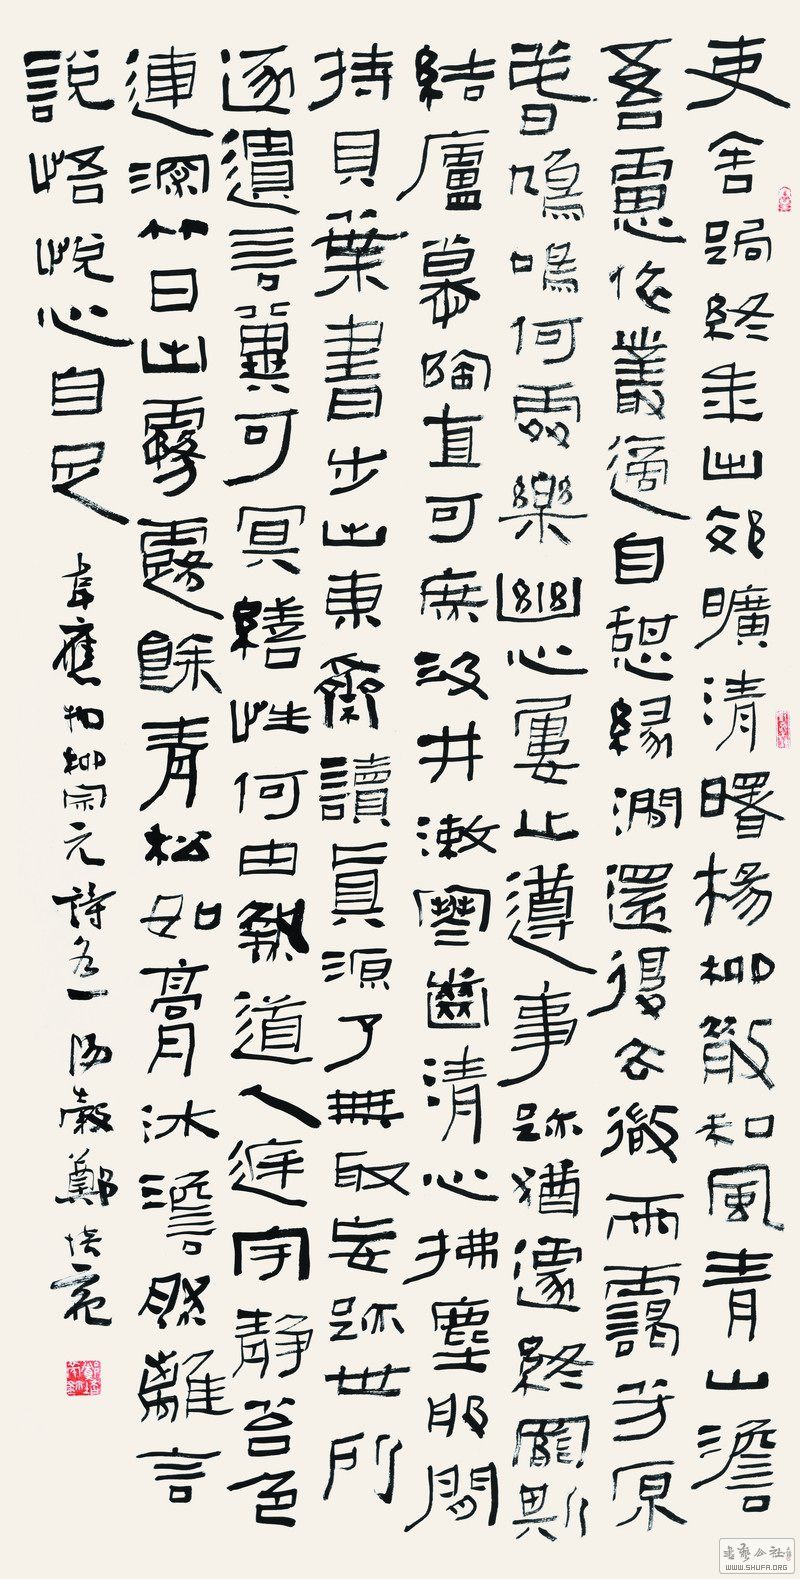 吏舍跼終年出郊曠清曙楊柳散和風青山澹
吾慮依叢適自憩緣澗還復去微雨靄芳原
春鳩鳴何處樂幽心屢止遵事跡猶遽終罷斯
結廬慕陶直可庶汲井漱寒齒清心拂塵服閒
持貝葉書步出東齋讀真源了無取妄跡世所
逐遺言冀可冥繕性何由熟道人庭宇靜苔色
連深竹日出霧露餘青松如膏沐澹然離言
說悟悅心自足
韋應物柳宗元詩各一 陽穀鄭培亮
書藝公社
WWW.SHUFA.ORG